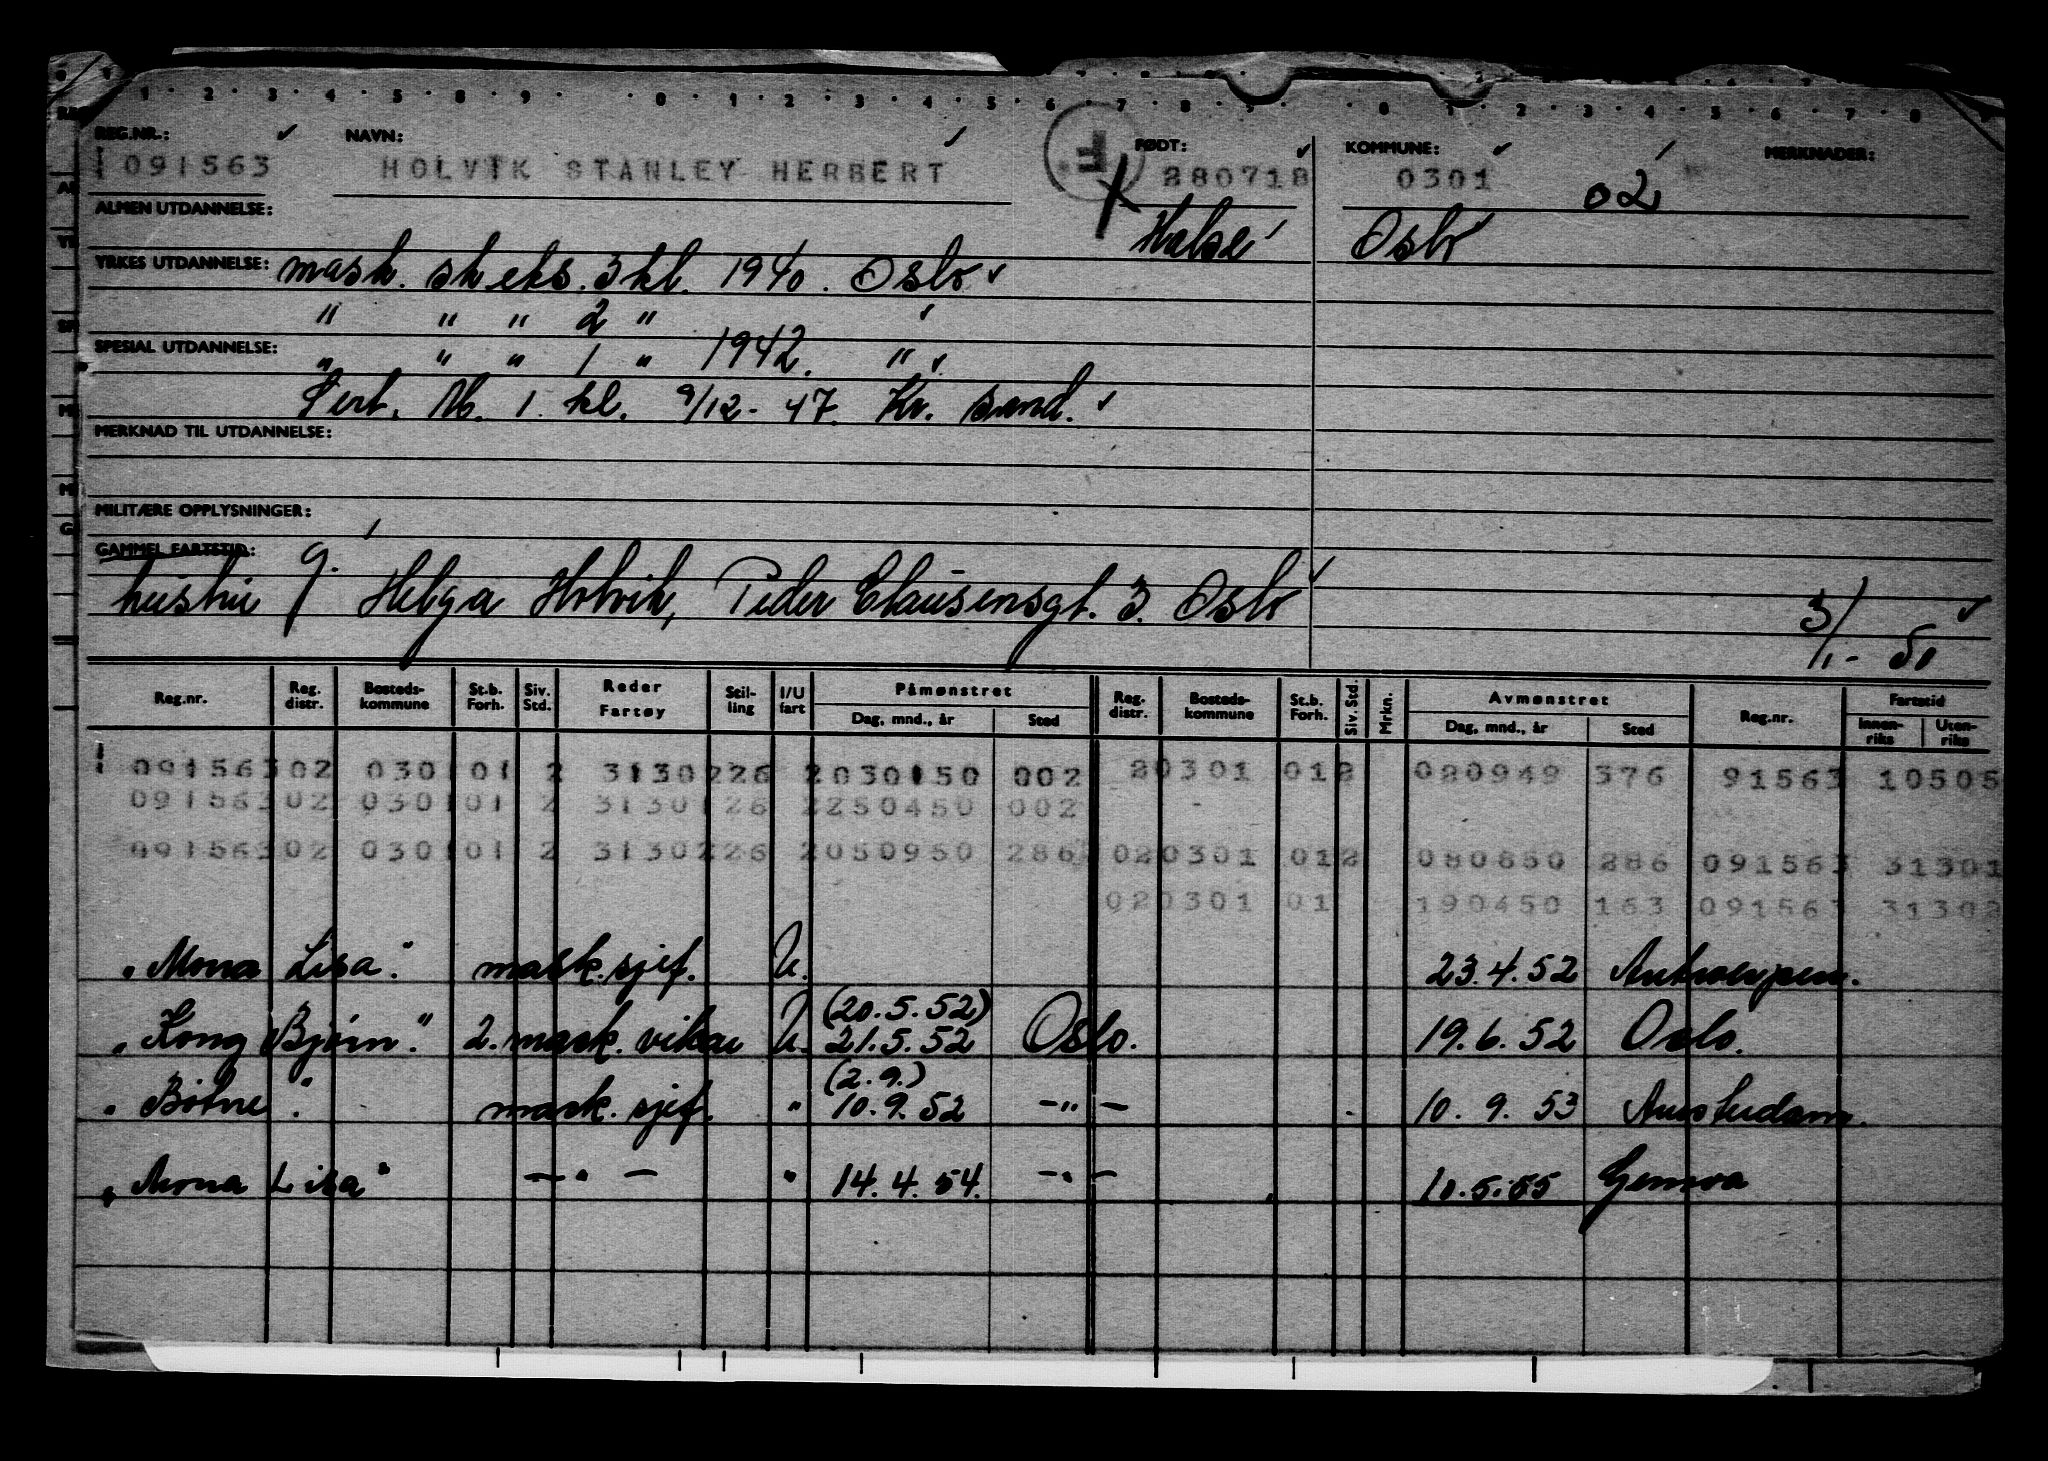 REG.NR.: NAVN: FØDT: KOMMUNE: MERKNADER:
091563 HOLVIK STANLEY HERBERT F. 280718 0301 02
ALMEN UTDANNELSE: Halse Oslo
YRKES UTDANNELSE: mask. sk.eks. 3 kl. 1940. Oslo
" " " 2 " "
SPESIAL UTDANNELSE: " " " 1 " 1942. "
Sert. M. 1. kl. 9/12-47. Kr. sand.
MERKNAD TIL UTDANNELSE:
MILITÆRE OPPLYSNINGER:
GAMMEL FARTSTID:
hustru g. Helga Holvik, Peder Clausensgt. 3. Oslo 3/1-50
Reg.nr. Reg. distr. Bosteds-kommune St.b. Forh. Siv. Std. Reder Fartøy Stil-ling I/U fart Påmønstret Dag, mnd., år Sted Reg. distr. Bosteds-kommune St.b. Forh. Siv. Std. Mrkn. Avmønstret Dag, mnd., år Sted Reg.nr. Fartstid Innen-riks Uten-riks
091563 02 0301 01 2 3130 226 2 030150 002 20301 012 080949 376 91563 10505
091563 02 0301 01 2 3130 126 2 250450 002
091563 02 0301 01 2 3130 226 2 050950 286 020301 012 080850 286 091563 31301
020301 01 190450 163 091563 31302
"Mona Lisa". mask.sjef. U. 23.4.52 Antwerpen.
(20.5.52)
"Kong Bjørn". 2. mask. vikar U. 21.5.52 Oslo. 19.6.52 Oslo.
(2.9.)
"Botne". mask. sjef. " 10.9.52 -"- 10.9.53 Amsterdam.
"Mona Lisa" -"- " 14.4.54. -"- 10.5.55 Genova